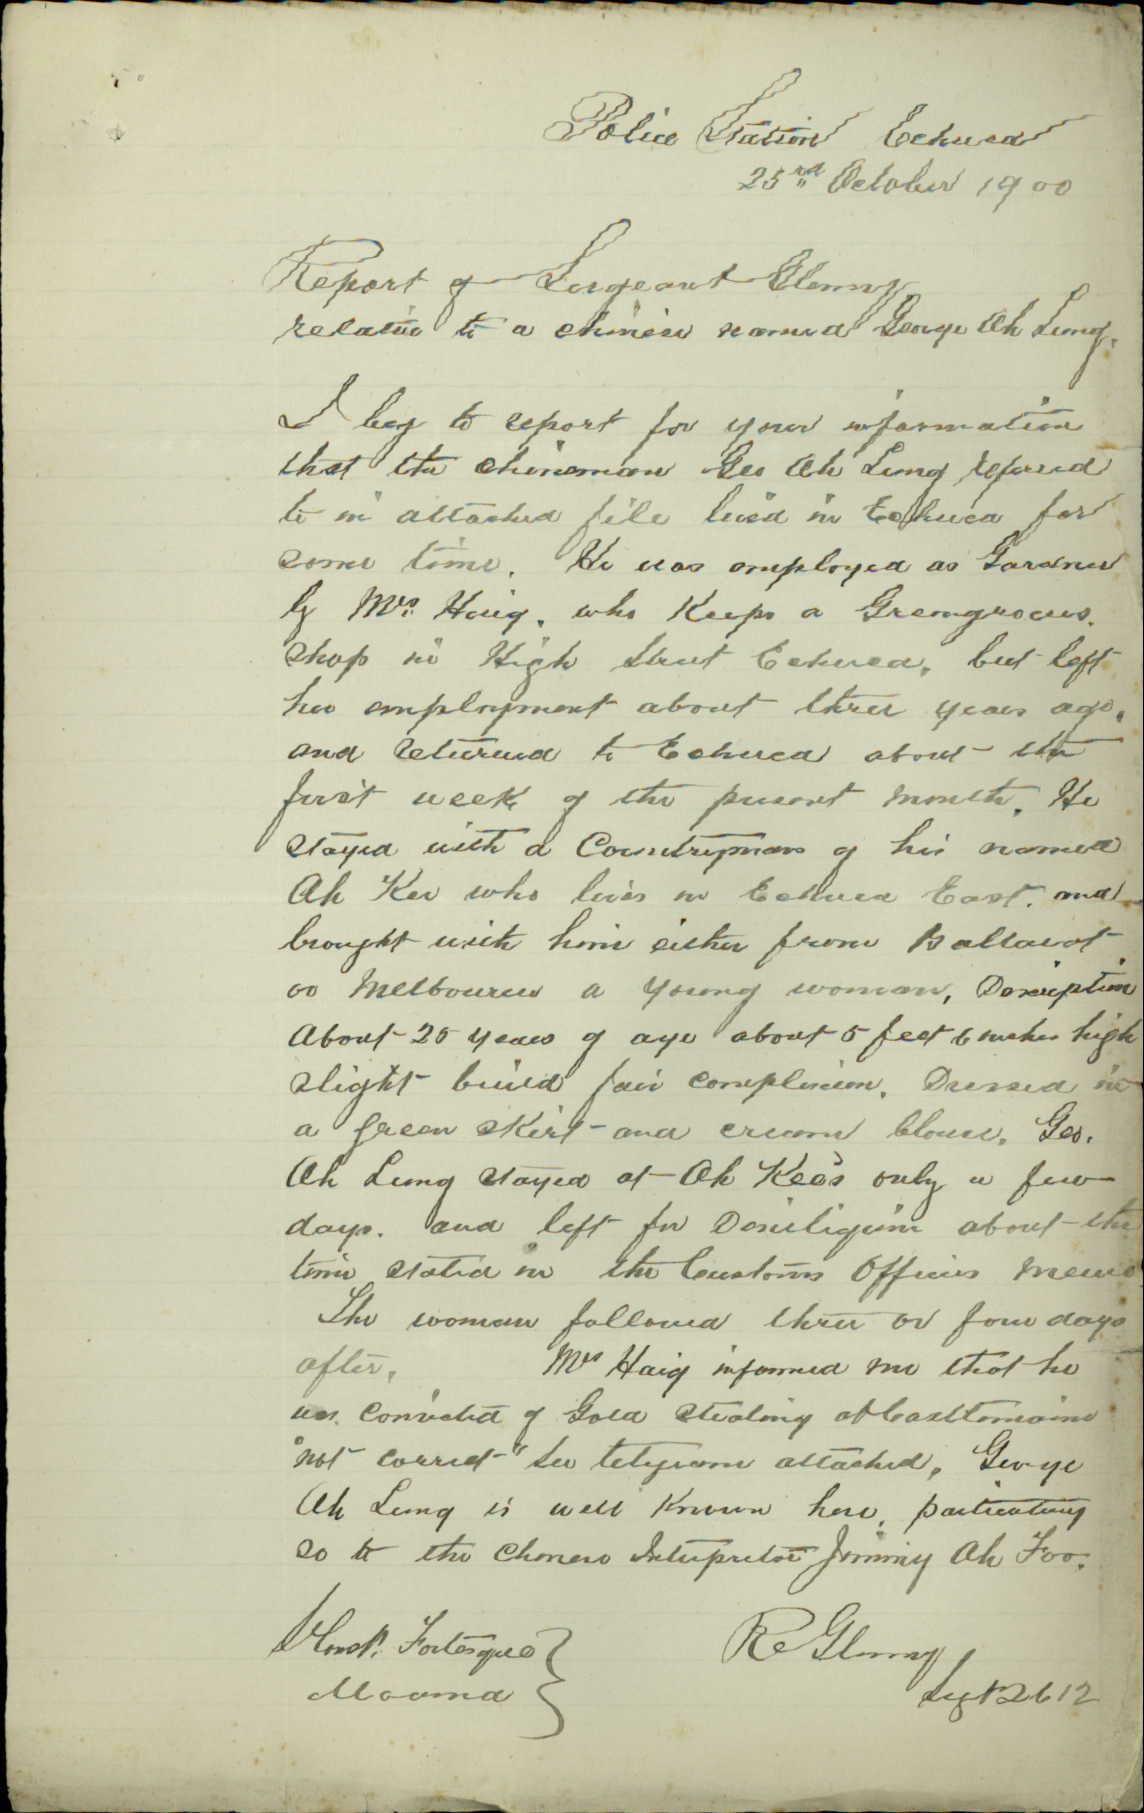 Police Station Echuca
25rd October 1900
Report of Sergeant Glenny
relative to a chinese named George Ah Lung.
I beg to report for your information
that the chinaman Geo Ah Lung referred
to in attached file lived in Echuca for
some time. He was employed as Gardner
by Mrs. Haig. who Keeps a Greengrocers.
shop in High Street Echuca. but left
her employment about three years ago.
and returned to Echuca about the
first week of the present month. He
stayed with a Countryman of his named
Ah Kee who lives in Echuca East. and
brought with him either from Ballarat
or Melbourne a young woman. Description
About 25 years of age about 5 feet 6 inches high
slight build fair complexion. Dressed in
a green skirt and cream blouse. Geo.
Ah Lung stayed at Ah Kee's only a few
days. and left for Deniliquin about the
time stated in the Customs Officers memo
The woman followed three or four days
after. Mrs Haig informed me that he
was convicted of Gold stealing at Castlemaine
"not correct" see telegram attached. George
Ah Lung is well Known here. particularly
so to the Chinese Interpreter Jimmy Ah Foo.
Const. Fortesque
Moama
R Glenny
Sergt 2612